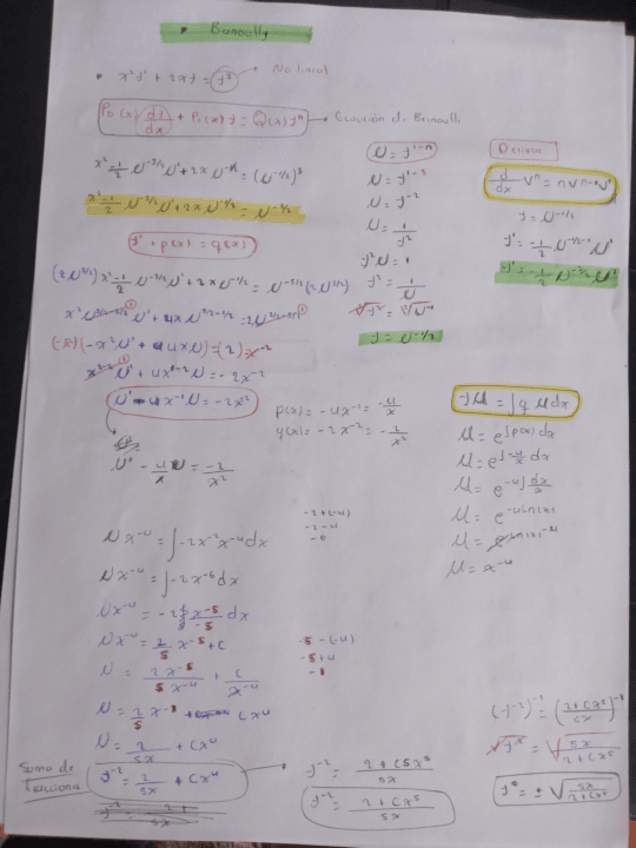 • Bernoully
• x²y' + 2xy = y³ → No lineal
P₀(x) dy/dx + P₁(x) y = Q(x) yⁿ → Ecuación de Bernoulli
x² -1/2 u^-3/2 u' + 2x u^-1/2 = (u^-1/2)³
x² -1/2 u^-3/2 u' + 2x u^-1/2 = u^-3/2
y' + p(x) = q(x)
(2u^3/2) x² -1/2 u^-3/2 u' + 2x u^-1/2 = u^-3/2 (2u^3/2)
x² u^3/2-3/2 u' + 4x u^3/2-1/2 = 2u^3/2-3/2
(-x²)(-x²u' + 4xu) = (2) -x^-2
x^2-2 u' + 4x^1-2 u = -2x^-2
u' - 4x^-1 u = -2x^-2
u' - 4/x u = -2/x²
u = y^1-n
u = y^1-3
u = y^-2
u = 1/y²
y²u = 1
y² = 1/u
√y² = √u^-1
y = u^-1/2
Derivar
d/dx vⁿ = n v^n-1 v'
y = u^-1/2
y' = -1/2 u^-1/2-1 u'
y' = -1/2 u^-3/2 u'
p(x) = -4x^-1 = -4/x
q(x) = -2x^-2 = -2/x²
yμ = ∫q μdx
μ = e^∫p(x)dx
μ = e^∫-4/x dx
μ = e^-4∫dx/x
μ = e^-4ln(x)
μ = e^ln(x)^-4
μ = x^-4
u x^-4 = ∫-2x^-2 x^-4 dx
u x^-4 = ∫-2x^-6 dx
u x^-4 = -2 x^-5/-5 dx
u x^-4 = 2/5 x^-5 + c
u = 2x^-5/5x^-4 + c/x^-4
u = 2/5 x^-1 + cx⁴
u = 2/5x + cx⁴
-2+(-4)
-2-4
-6
-5-(-4)
-5+4
-1
Suma de fracciones
y^-2 = 2/5x + cx⁴ →
y^-2 = 2+c5x⁵/5x
y^-2 = 2+cx⁵/5x
(y^-2)^-1 = (2+cx⁵/5x)^-1
√y² = √5x/2+cx⁵
y = ±√5x/2+cx⁵